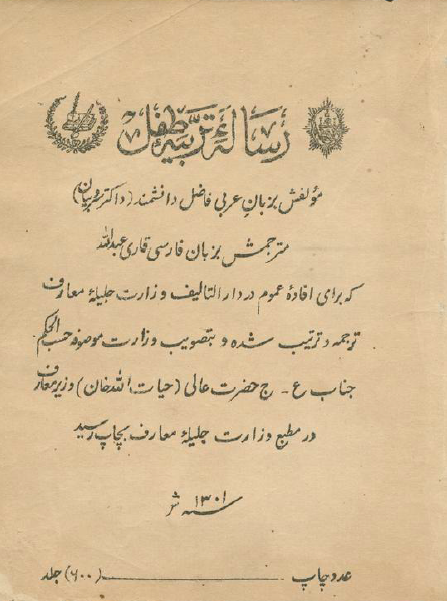 رسالهٔ تربیه طفل
مؤلفش بزبان عربی فاضل دانشمند (داکتر
مترجمش بزبان فارسی قاری عبدالله
که برای افادهٔ عموم در دار التالیف وزارت جلیلهٔ معارف
ترجمه و ترتیب شده و بتصویب وزارت موصوفه حسب الحکم
جناب ع - ج حضرت عالی (حیات الله خان) وزیر معارف
در مطبع وزارت جلیلهٔ معارف بچاپ رسید
سنه ۱۳۰۱ ش
عدد چاپ ـــــــــ (۶۰۰) جلد